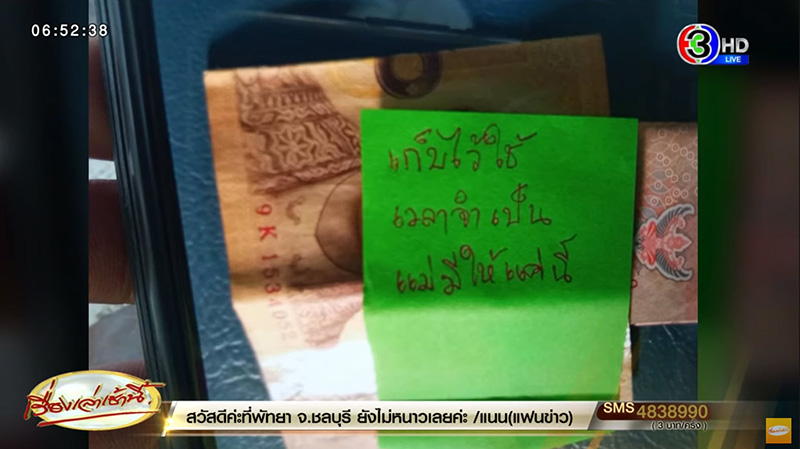 06:52:38
3 HD
LIVE
เก็บไว้ใช้
เวลาจำเป็น
แม่มีให้แค่นี้
9K 1534052
เรื่องเล่าเช้านี้
สวัสดีค่ะที่พัทยา จ.ชลบุรี ยังไม่หนาวเลยค่ะ /แนน(แฟนข่าว)
SMS 4838990
( 3 บาท/ครั้ง )